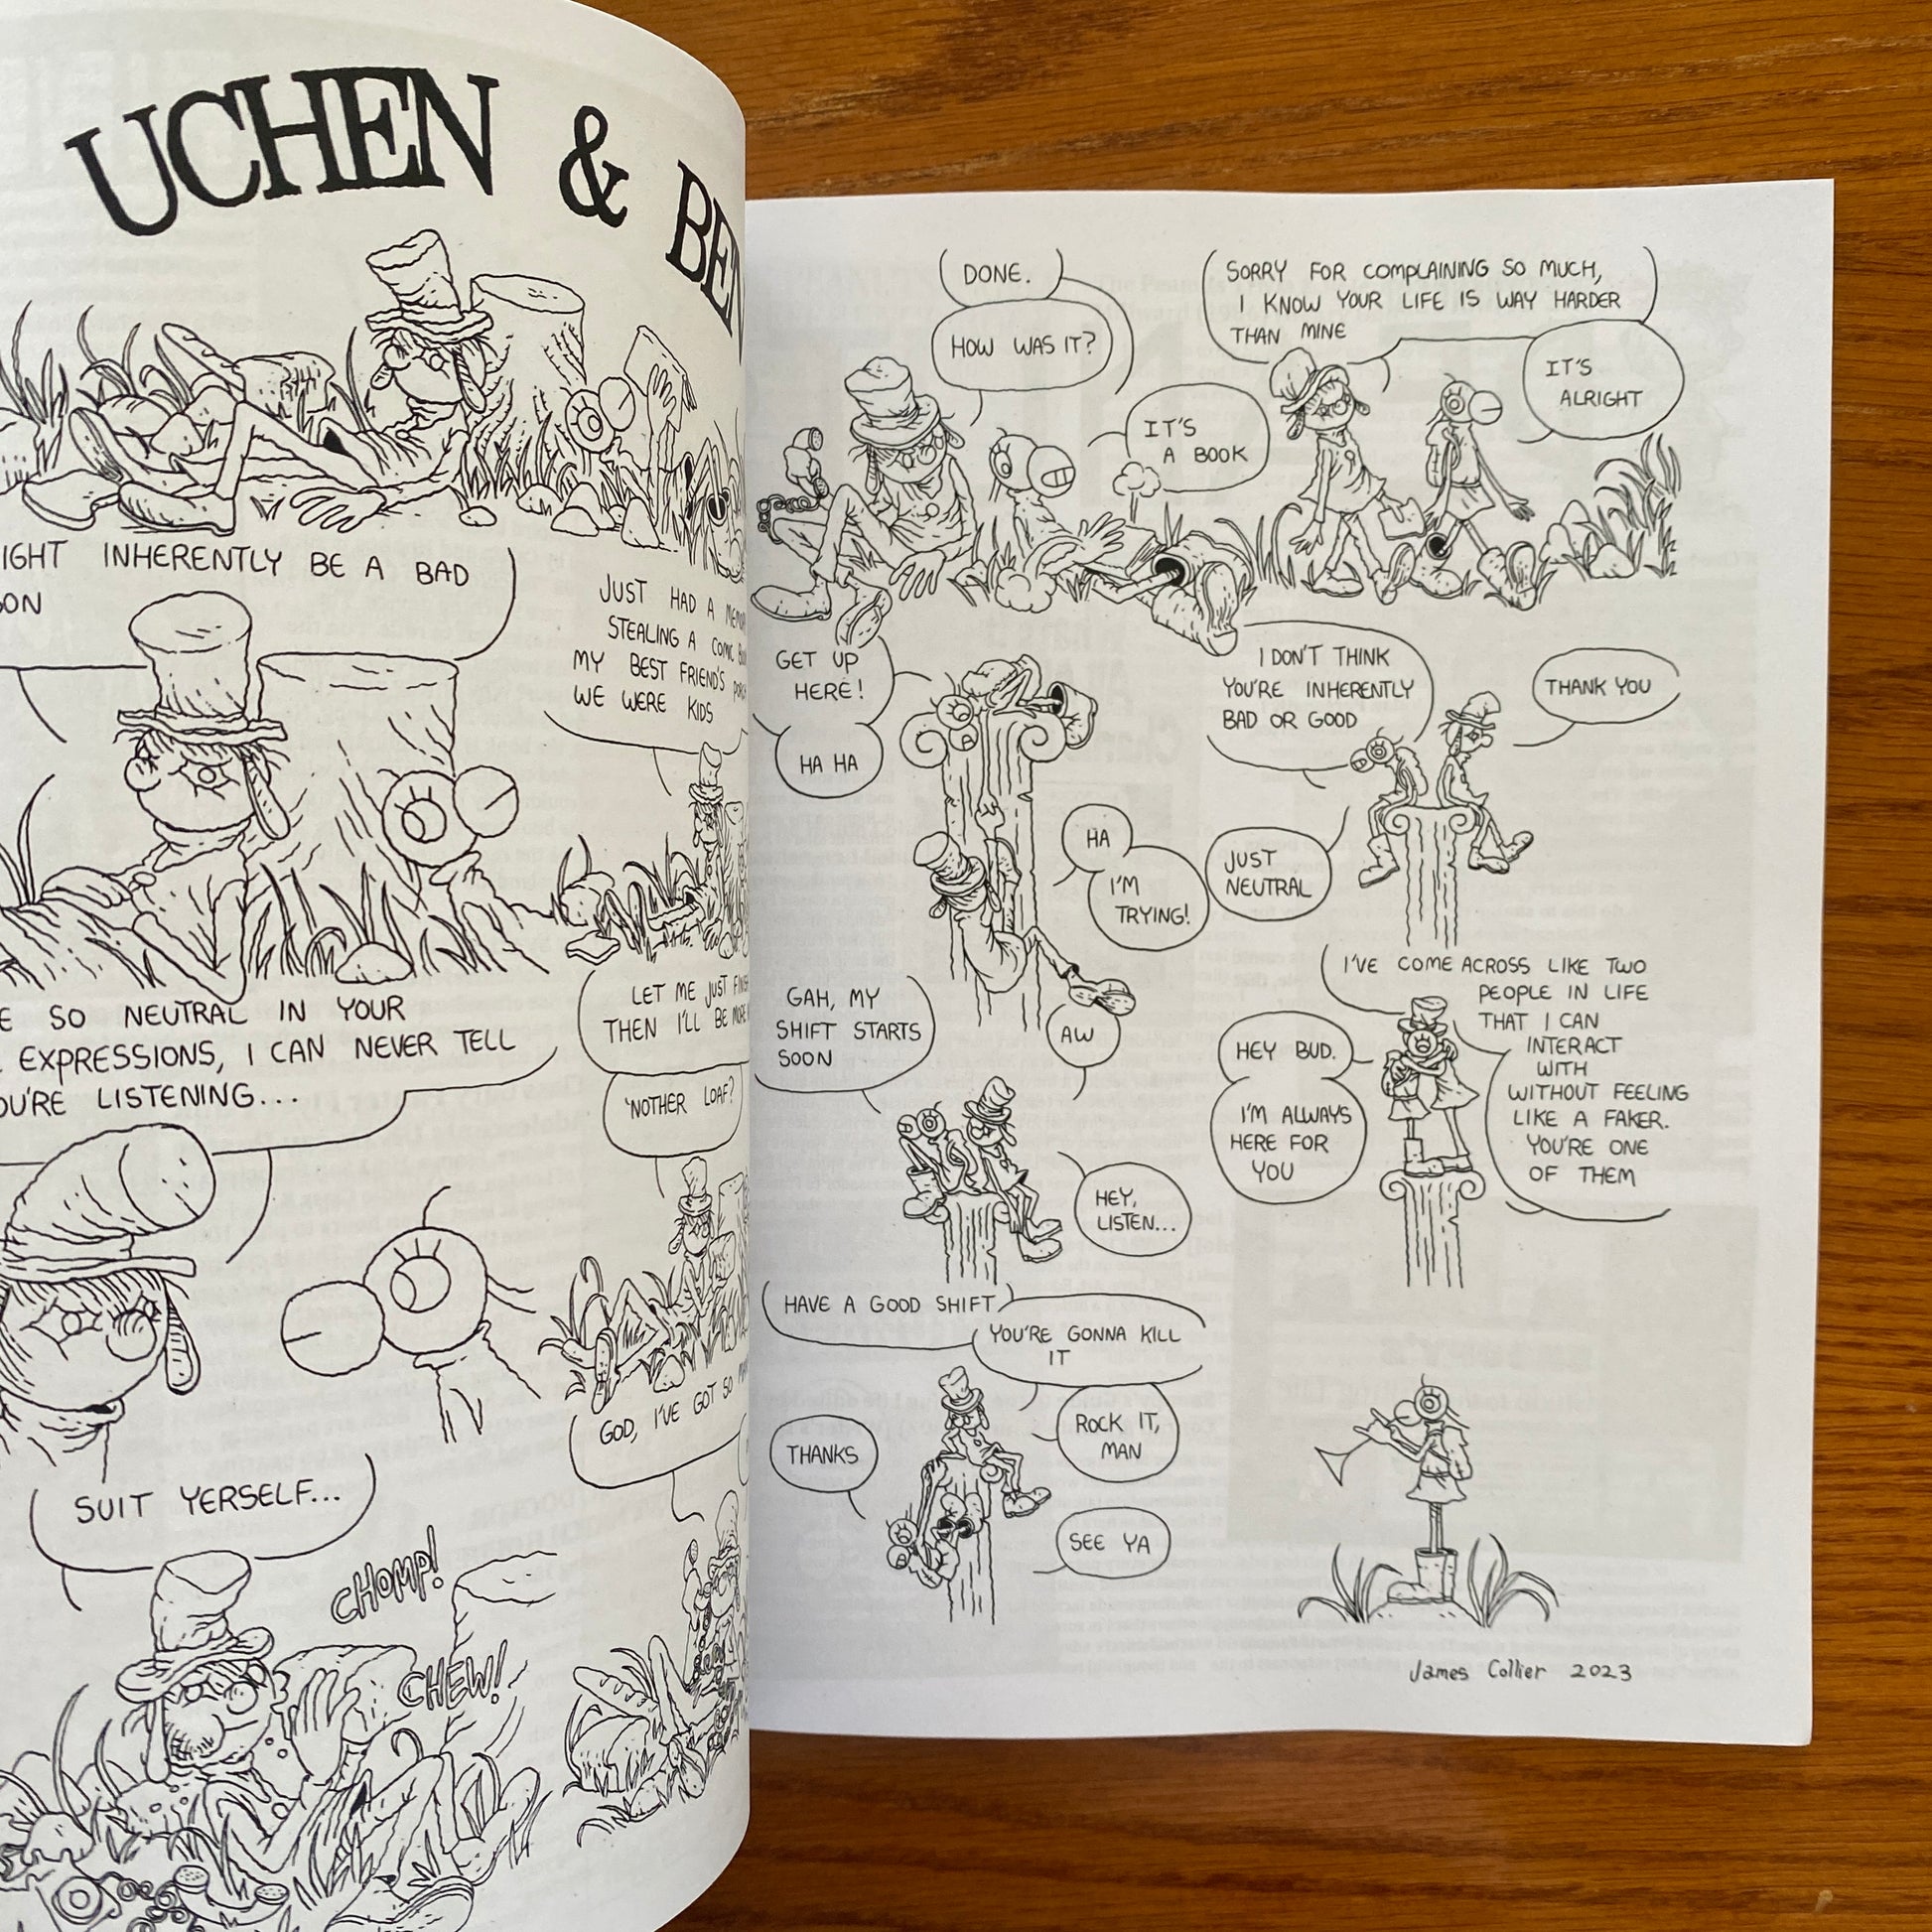 UCHEN & BEN
IGHT INHERENTLY BE A BAD
SON
JUST HAD A
STEALING A COMIC
MY BEST FRIEND'S
WE WERE KIDS
E SO NEUTRAL IN YOUR
EXPRESSIONS, I CAN NEVER TELL
OU'RE LISTENING...
LET ME JUST
THEN I'LL BE
'NOTHER LOAF?
SUIT YERSELF...
GOD, I'VE GOT SO
CHOMP!
CHEW!
DONE.
HOW WAS IT?
IT'S
A BOOK
SORRY FOR COMPLAINING SO MUCH,
I KNOW YOUR LIFE IS WAY HARDER
THAN MINE
IT'S
ALRIGHT
GET UP
HERE!
HA HA
HA
I'M
TRYING!
I DON'T THINK
YOU'RE INHERENTLY
BAD OR GOOD
THANK YOU
JUST
NEUTRAL
GAH, MY
SHIFT STARTS
SOON
AW
HEY,
LISTEN...
I'VE COME ACROSS LIKE TWO
PEOPLE IN LIFE
THAT I CAN
INTERACT
WITH
WITHOUT FEELING
LIKE A FAKER.
YOU'RE ONE
OF THEM
HEY BUD.
I'M ALWAYS
HERE FOR
YOU
HAVE A GOOD SHIFT
YOU'RE GONNA KILL
IT
ROCK IT,
MAN
THANKS
SEE YA
James Collier 2023